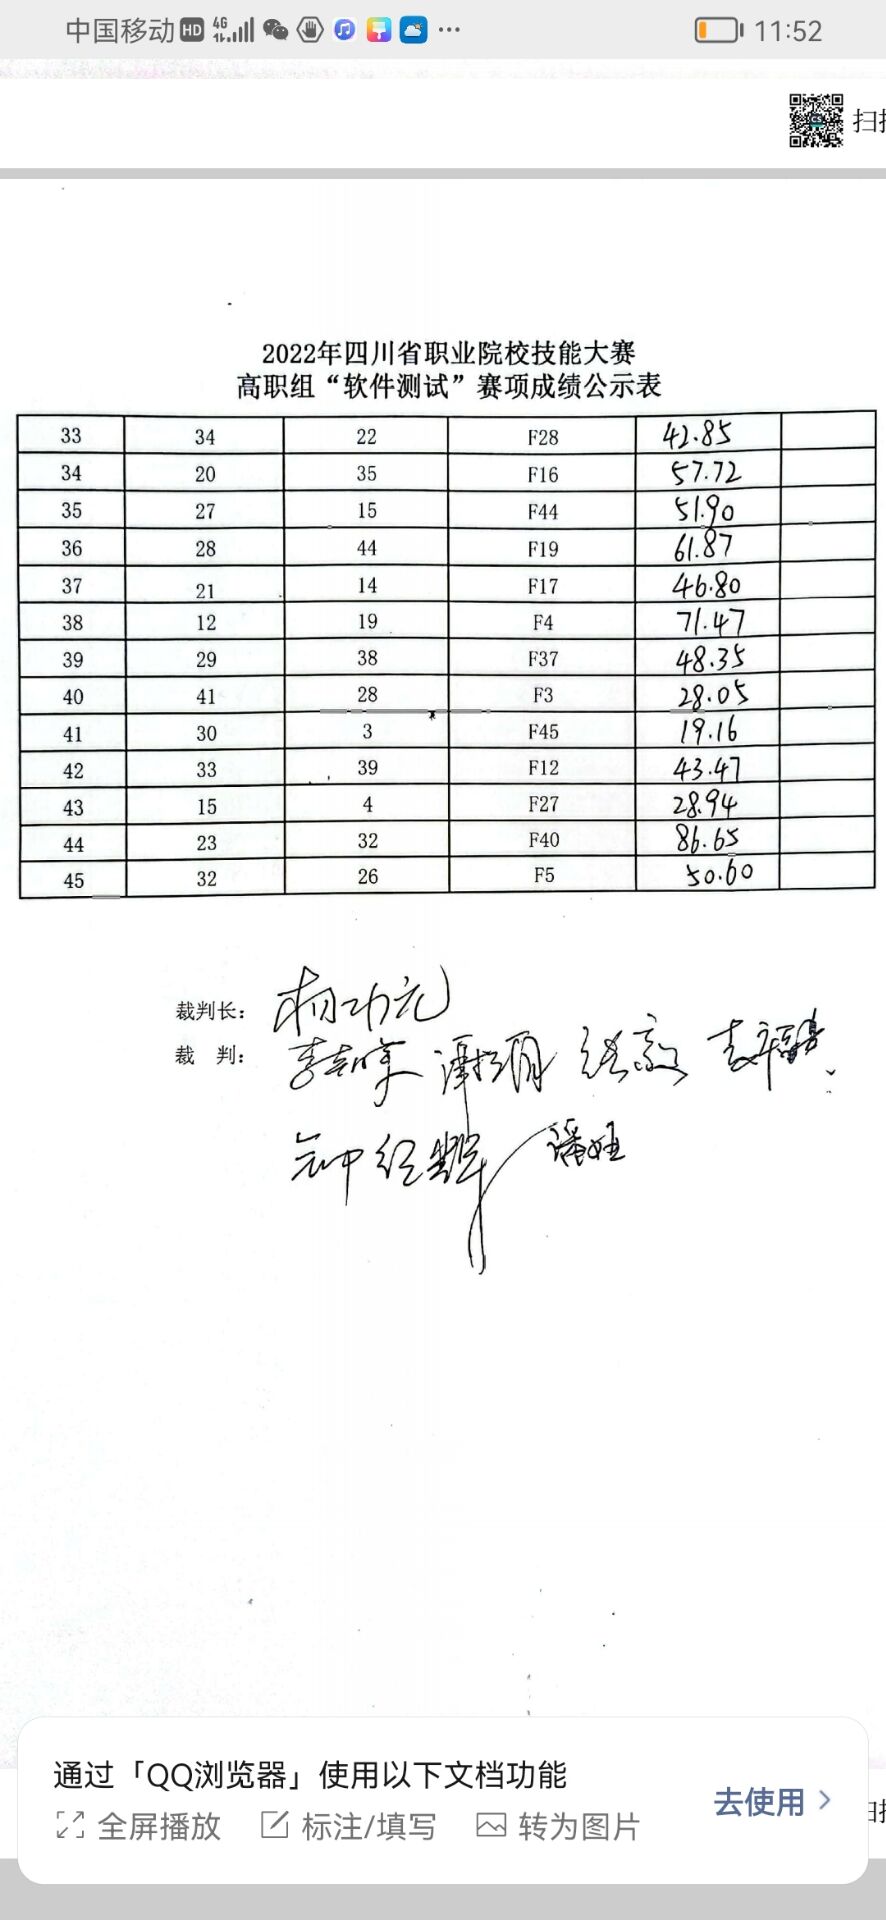 中国移动 HD 4G 11:52
扫
2022年四川省职业院校技能大赛
高职组“软件测试”赛项成绩公示表
33 34 22 F28 42.85
34 20 35 F16 57.72
35 27 15 F44 51.90
36 28 44 F19 61.87
37 21 14 F17 46.80
38 12 19 F4 71.47
39 29 38 F37 48.35
40 41 28 F3 28.05
41 30 3 F45 19.16
42 33 39 F12 43.47
43 15 4 F27 28.94
44 23 32 F40 86.65
45 32 26 F5 50.60
裁判长: 杨功元
裁 判:
通过「QQ浏览器」使用以下文档功能
全屏播放 标注/填写 转为图片 去使用